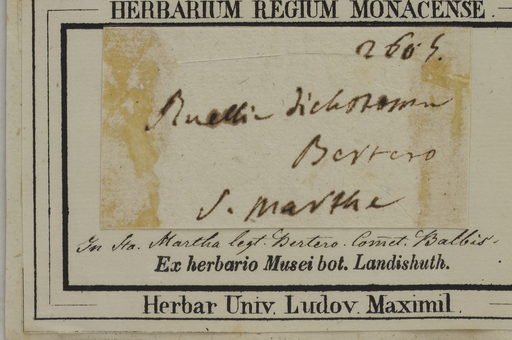 HERBARIUM REGIUM MONACENSE.
2605.
Ruellia dichotoma
Bertero
S. Marthe
In Sta. Martha legt. Bertero. Comt. Balbis.
Ex herbario Musei bot. Landishuth.
Herbar Univ. Ludov. Maximil.